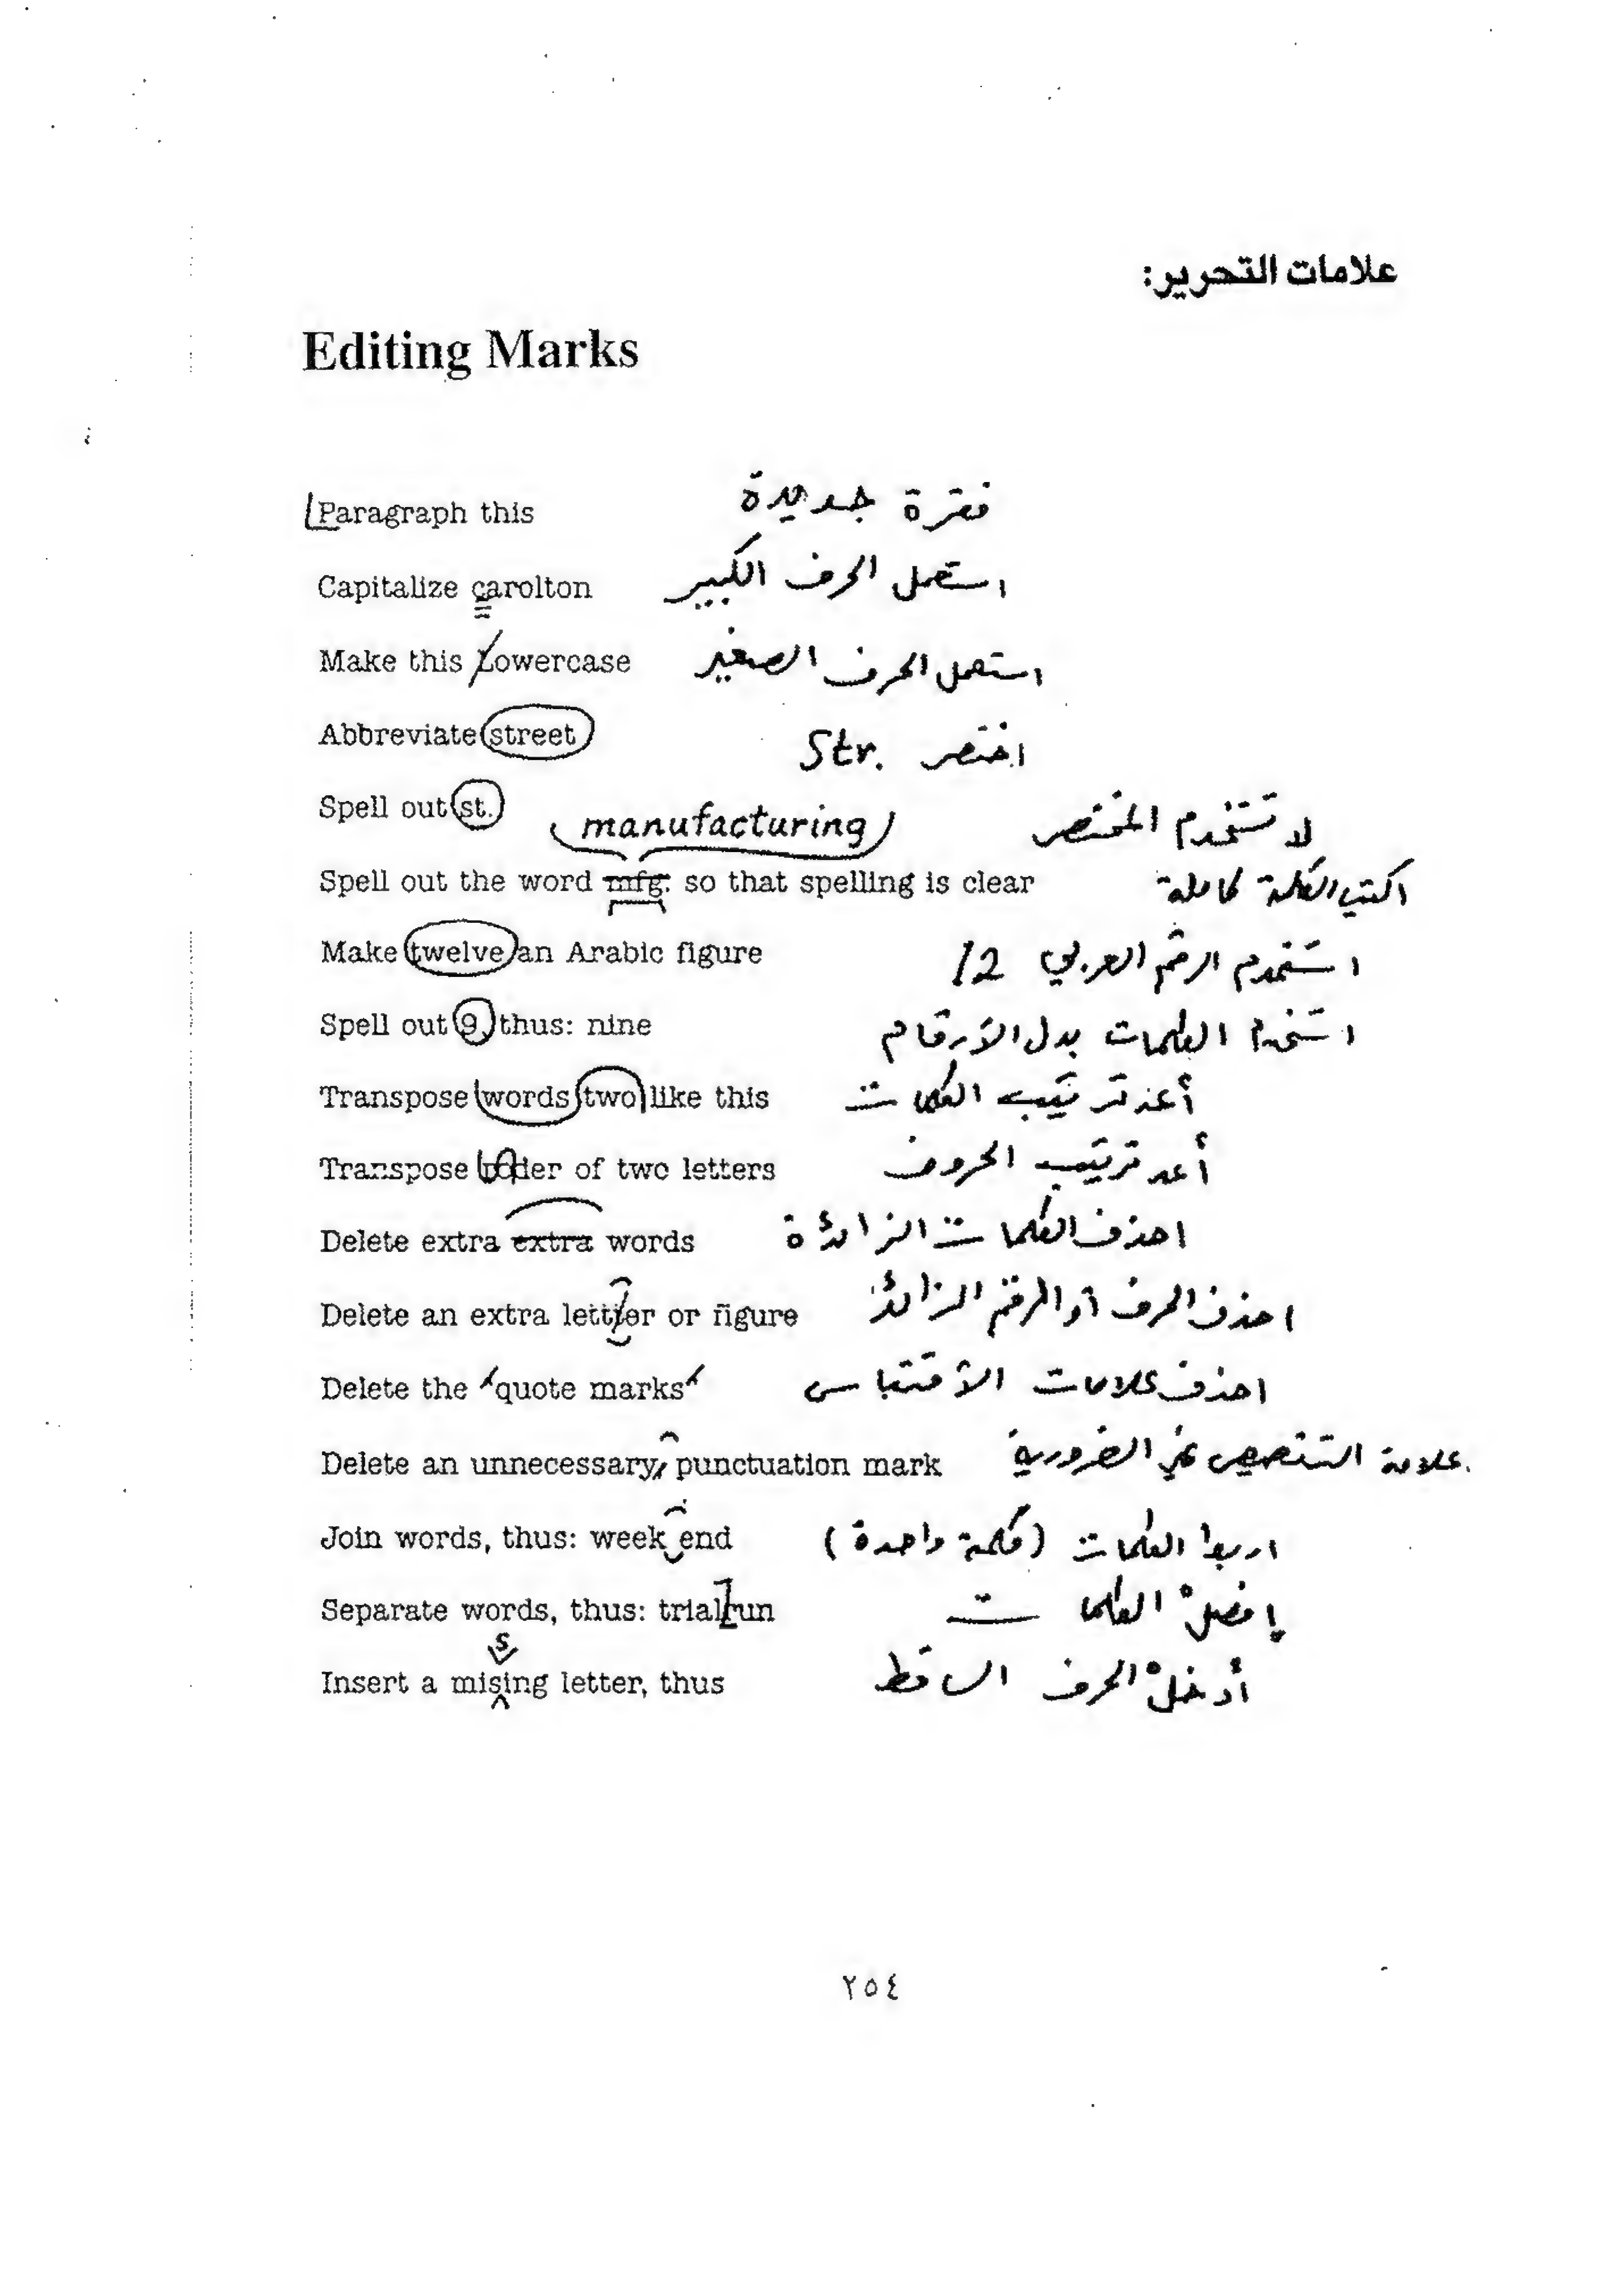 علامات التحرير:
Editing Marks
Paragraph this فقرة جديدة
Capitalize carolton استعمل الحرف الكبير
Make this Lowercase استعمل الحرف الصغير
Abbreviate street اختصر Str.
Spell out st. لا تستخدم المختصر
manufacturing
Spell out the word mfg. so that spelling is clear اكتب الكلمة كاملة
Make twelve an Arabic figure استخدم الرقم العربي 12
Spell out 9, thus: nine استخدم الكلمات بدل الأرقام
Transpose words two like this أعد ترتيب الكلمات
Transpose roder of two letters أعد ترتيب الحروف
Delete extra extra words احذف الكلمات الزائدة
Delete an extra lettter or figure احذف الحرف أو الرقم الزائد
Delete the "quote marks" احذف علامات الأقتباس
Delete an unnecessary, punctuation mark علامة التنصيص غير الضرورية.
Join words, thus: week end اربط الكلمات (كلمة واحدة)
Separate words, thus: trialrun إفصلْ الكلمات
s
Insert a mising letter, thus أدخلْ الحرف الساقط
٢٥٤